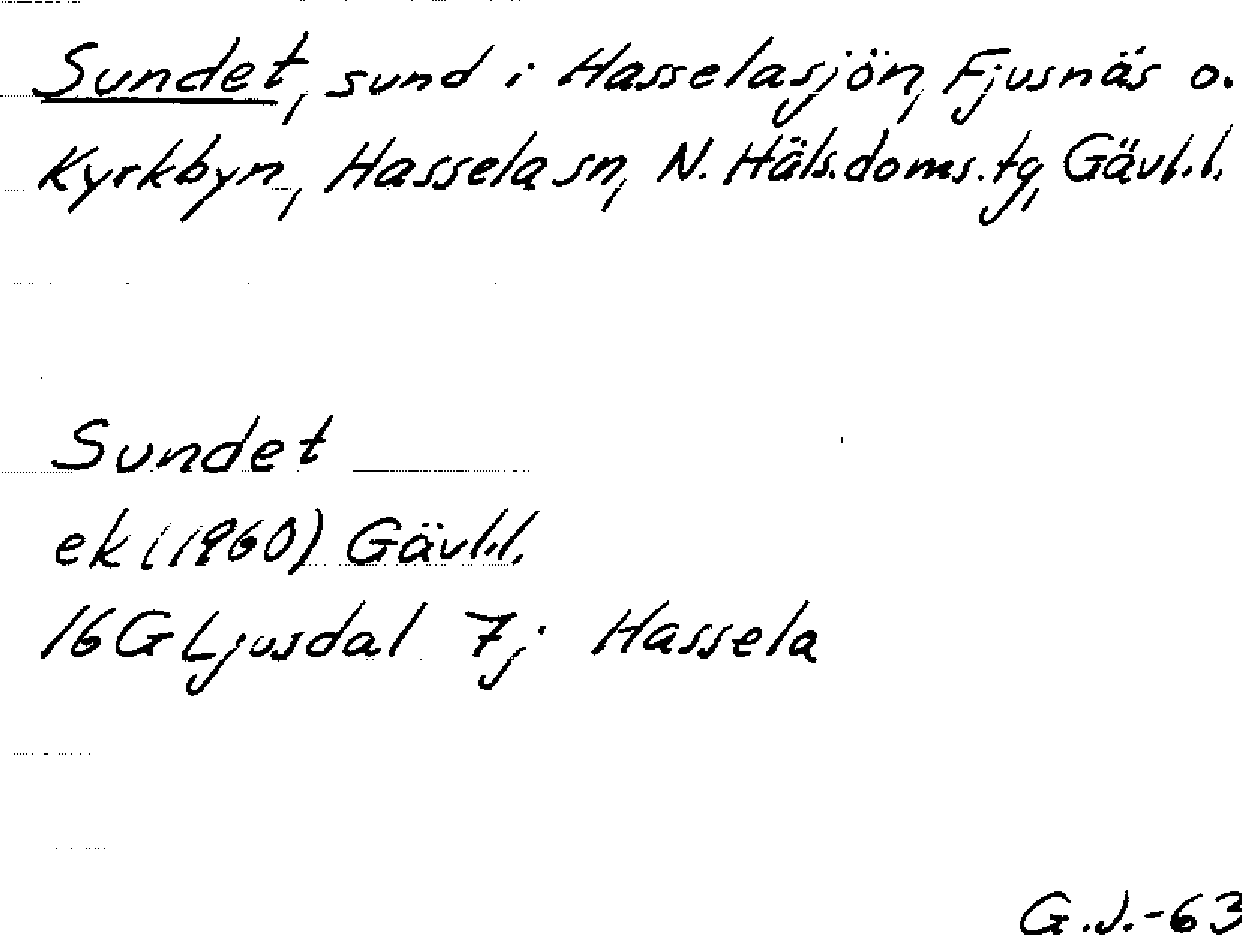 Sundet, sund i Hasselasjön, Fjusnäs o.
Kyrkbyn, Hassela sn, N. Häls. doms. tg, Gävl.l.
Sundet
ek (1960) Gävl.l.
16G Ljusdal 7j Hassela
G.J.-63